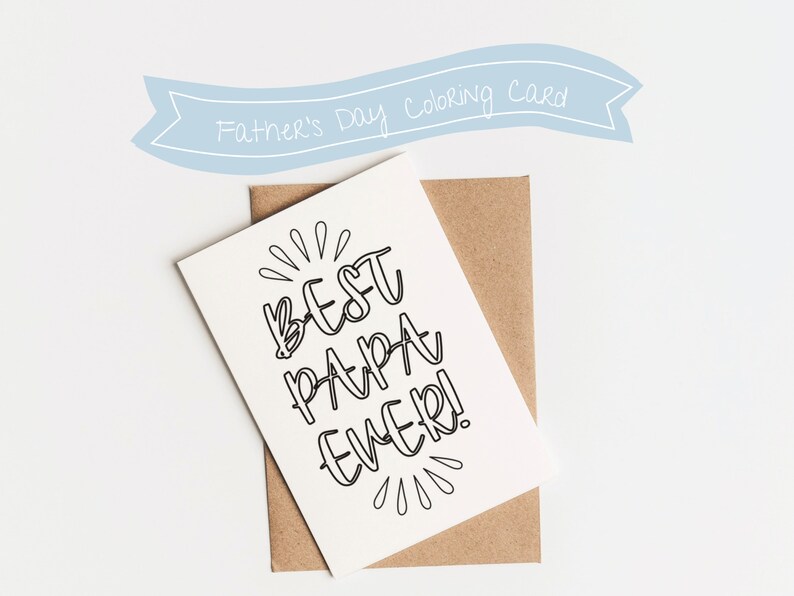 Father's Day Coloring Card
BEST
PAPA
EVER!